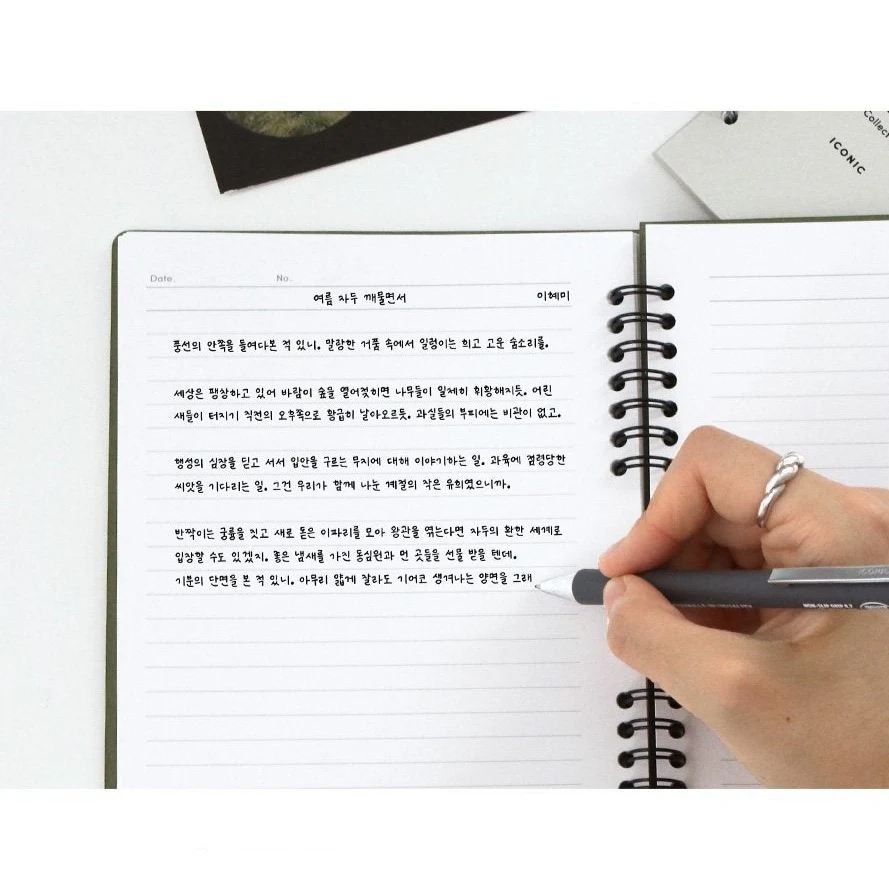 Collect
ICONIC
Date.
No.
여름 자두 깨물면서
이혜미
풍선의 안쪽을 들여다본 적 있니. 말랑한 거품 속에서 일렁이는 희고 고운 숨소리를.
세상은 팽창하고 있어 바람이 숲을 열어젖히면 나무들이 일제히 휘황해지듯. 어린
새들이 터지기 직전의 오후쪽으로 황급히 날아오르듯. 과실들의 부피에는 비관이 없고.
행성의 심장을 딛고 서서 입안을 구르는 무지에 대해 이야기하는 일. 과육에 점령당한
씨앗을 기다리는 일. 그건 우리가 함께 나눈 계절의 작은 유희였으니까.
반짝이는 궁륭을 짓고 새로 돋은 이파리를 모아 왕관을 엮는다면 자두의 환한 세계로
입장할 수도 있겠지. 좋은 냄새를 가진 동심원과 먼 곳들을 선물 받을 텐데.
기분의 단면을 본 적 있니. 아무리 얇게 잘라도 기어코 생겨나는 양면을 그래
ICONIC
NON-SLIP GRIP 0.7